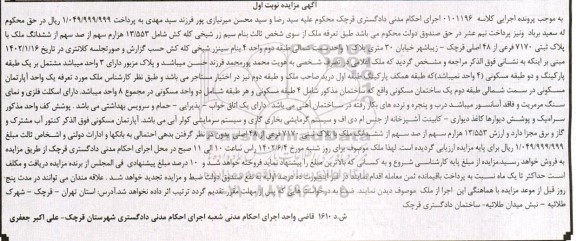 آگهی مزایده نوبت اول
به موجب پرونده اجرایی کلاسه ۰۱۰۱۱۹۶ اجرای احکام مدنی دادگستری قرچک محکوم علیه سید رضا و سید محسن میرنیازی پور فرزند سید مهدی به پرداخت ۱/۰۴۹/۹۹۹/۹۹۹ ریال در حق محکوم
له سعید برباد ونیز پرداخت نیم عشر در حق صندوق دولت محکوم می باشد طبق تعرفه ملک از سوی شخص ثالث بنام سیم زر شیخی کله کش شامل ۱۳/۵۵۳ هزارم سهم از صد سهم از ششدانگ ملک با
پلاک ثبتی ۷۱۷۰ فرعی از ۴۸ اصلی قرچک - زیباشهر خیابان ۳۰ متری پلاک ۱۰ واحد ۴ شمالی طبقه دوم واحد ۴ بنام سیمزر شیخی کله کش حسب گزارش و صورتجلسه کلانتری در تاریخ ۱۴۰۲/۱/۱۶
مبنی بر اینکه به نشانی فوق الذکر مراجعه و مشخص گردید که ملک در تصرف شخصی به هویت محمد پورمحمد فرزند حسن میباشد و پلاک مزبور دارای ۳ واحد میباشد مشتمل بر یک طبقه
پارکینگ و دو طبقه مسکونی (۴ واحد نمیباشد) که طبقه همکف پارکینگ طبقه اول درید صاحب ملک و طبقه دوم نیز در اختیار مستاجر می باشد و طبق نظر کارشناس ملک مورد تعرفه یک واحد آپارتمان
مسکونی در سمت شمالی طبقه دوم یک ساختمان مسکونی واقع که ساختمان مذکور شامل ۴ طبقه مسکونی و هر طبقه شامل دو واحد مسکونی در مجموع ۸ واحد میباشد. دارای اسکلت فلزی و نمای
سنگ مرمریت و فاقد آسانسور میباشد درب و پنجره و نرده های بکار رفته در ساختمان آهنی می باشد. دارای یک اتاق خواب - پذیرایی - حمام و سرویس بهداشتی می باشد. پوشش کف واحد مذکور
سرامیک و پوشش دیوارها کاغذ دیواری - کابینت آشپزخانه از جنس ام دی اف و سیستم گرمایشی بخاری گازی و سیستم سرمایشی کولر آبی می باشد. آپارتمان مسکونی فوق الذکر کنتور آب مشترک و
گاز و برق مجزا دارد و ارزش ۱۳/۵۵۳ هزارم سهم از صد سهم از ششدانگ ملک با پلاک ثبتی ۷۱۷۰ فرعی از ۴۸ اصلی بدون در نظر گرفتن بدهی احتمالی به بانکها و ادارات دولتی و اشخاص ثالث مبلغ
۱/۰۴۹/۹۹۹/۹۹۹ ریال برای پایه مزایده ارزیابی گردیده است. لهذا ملک موصوف برای روز شنبه مورخ ۱۴۰۲/۶/۴ راس ساعت ۱۰ الی ۱۱ صبح در محل اجرای احکام مدنی دادگستری قرچک از طریق مزایده
به فروش خواهد رسید.مزایده از مبلغ پایه کارشناسی شروع و به کسانی که بالاترین مبلغ را پیشنهاد نماید فروخته خواهد شد و ۱۰ درصد مبلغ پیشنهادی فی المجلس از برنده مزایده دریافت و مکلف
است حداکثر تا یک ماه نسبت به پرداخت باقیمانده ثمن معامله اقدام نمایند در غیر اینصورت ۱۰ درصد اولیه به نفع صندوق دولت ضبط و مزایده تجدید خواهد شد. علاقه مندان می توانند در مدت پنج
روز قبل از موعد مزایده با هماهنگی این اجرا از ملک موصوف دیدن نمایند. ضمنا به پیشنهادات واصله بعد از مهلت مقرر تقدیم گردد ترتیب اثر داده نخواهد شد.آدرس: استان تهران - قرچک - شهرک
طلائیه - نبش میدان طلائیه- ساختمان دادگستری قرچک
ش.د ۱۶۱۰ قاضی واحد اجرای احکام مدنی شعبه اجرای احکام مدنی دادگستری شهرستان قرچک- علی اکبر جعفری